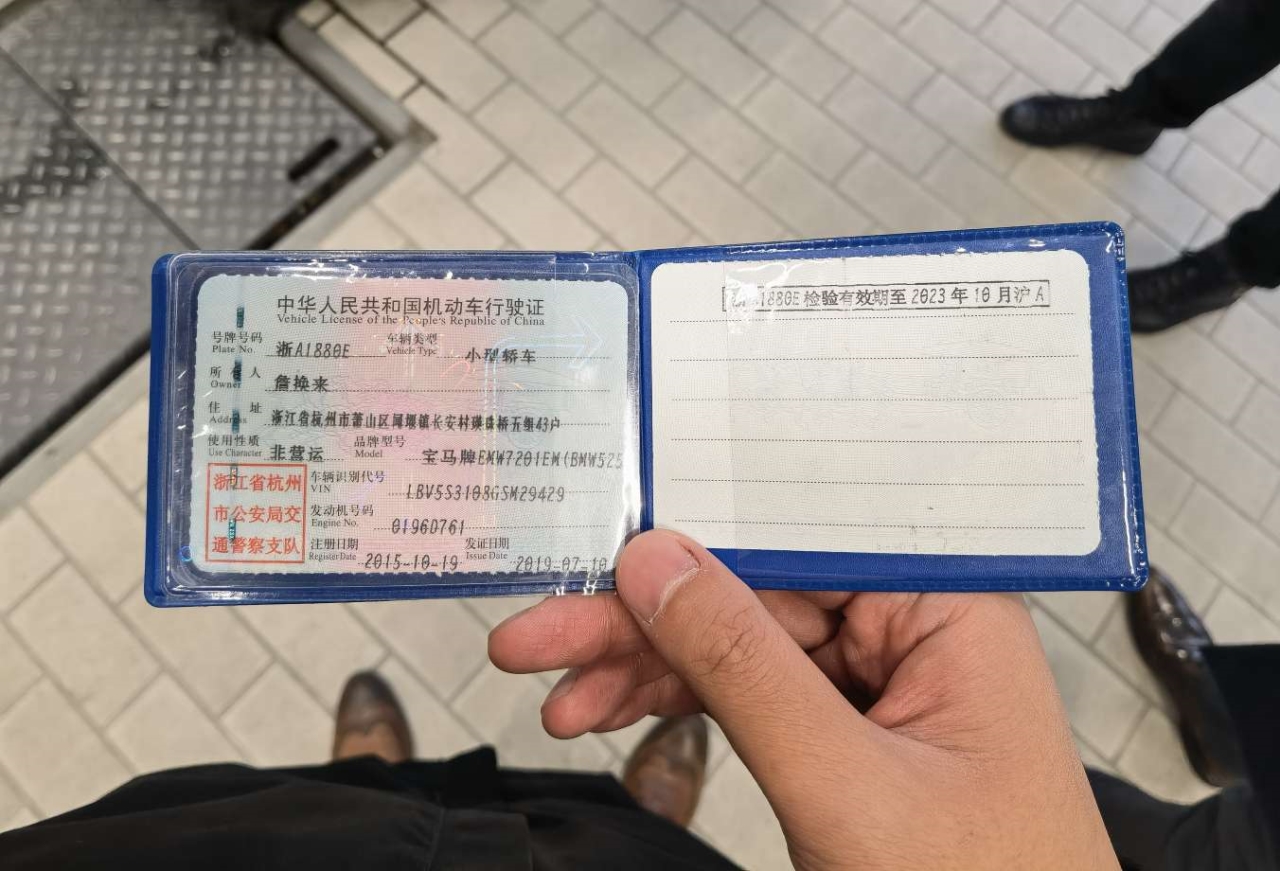 中华人民共和国机动车行驶证
Vehicle License of the People's Republic of China
号牌号码 浙A1880E 车辆类型 小型轿车
Plate No. Vehicle Type
所有人 詹换来
Owner
住址 浙江省杭州市萧山区闻堰镇长安村瑛珠桥五组43户
Address
使用性质 非营运 品牌型号 宝马牌BMW7201EM(BMW525
Use Character Model
浙江省杭州
市公安局交
通警察支队
车辆识别代号 LBV5S3108GSM29429
VIN
发动机号码 01960761
Engine No.
注册日期 2015-10-19 发证日期 2019-07-10
Register Date Issue Date
浙A1880E 检验有效期至 2023 年 10 月沪 A